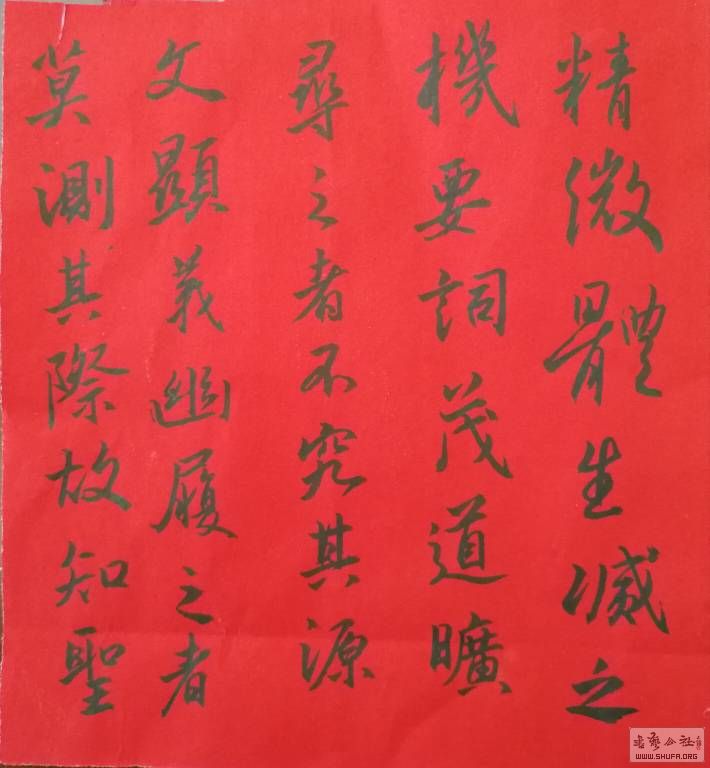 精微體生滅之
機要詞茂道曠
尋之者不究其源
文顯義幽履之者
莫測其際故知聖
书艺公社
WWW.SHUFA.ORG